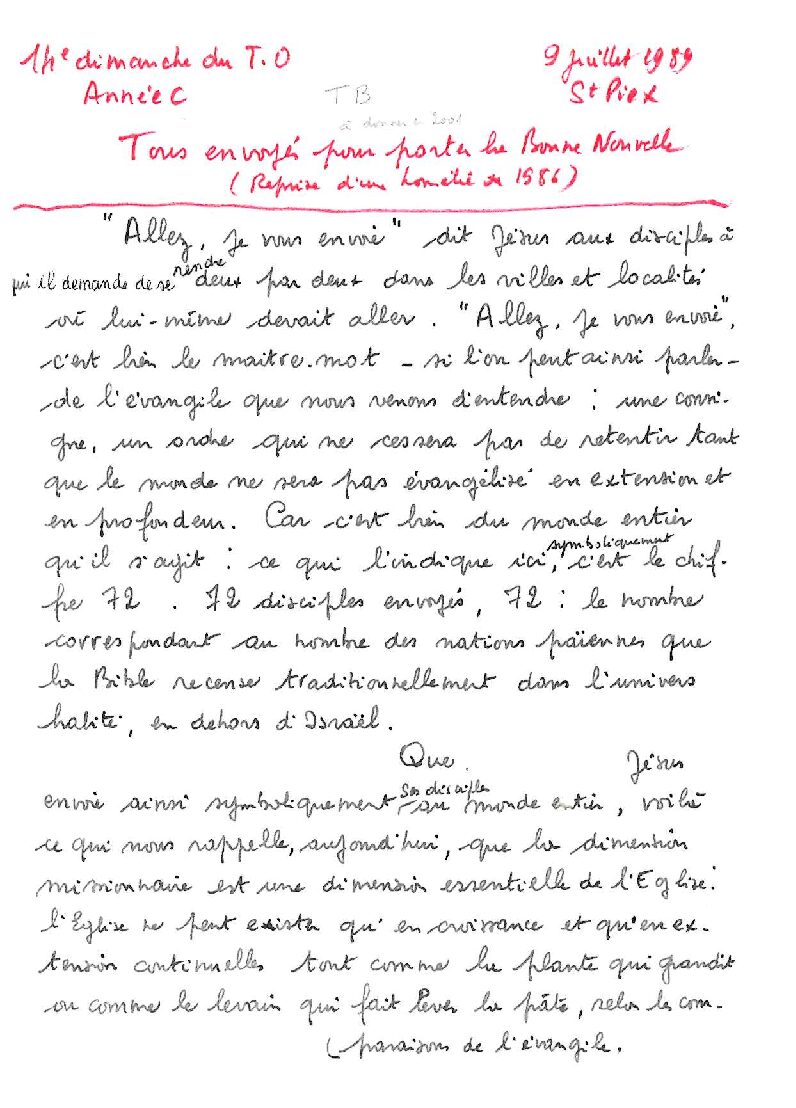 14e dimanche du T.O 9 Juillet 1989
Année C TB St Pie X
à donner 2001
Tous envoyés pour porter la Bonne Nouvelle
(Reprise d'une homélie de 1986)
"Allez, je vous envoie" dit Jésus aux disciples à
qui il demande de se rendre deux par deux dans les villes et localités
où lui-même devait aller. "Allez, je vous envoie",
c'est bien le maître-mot - si l'on peut ainsi parler -
de l'évangile que nous venons d'entendre ; une consi-
gne, un ordre qui ne cessera pas de retentir tant
que le monde ne sera pas évangélisé en extension et
en profondeur. Car c'est bien du monde entier
qu'il s'agit : ce qui l'indique ici, symboliquement c'est le chif-
fre 72. 72 disciples envoyés, 72 : le nombre
correspondant au nombre des nations païennes que
la Bible recense traditionnellement dans l'univers
habité, en dehors d'Israël.
Que Jésus
envoie ainsi symboliquement Ses disciples au monde entier, voilà
ce qui nous rappelle, aujourd'hui, que la dimension
missionnaire est une dimension essentielle de l'Eglise :
l'Eglise ne peut exister qu'en croissance et qu'en ex-
tension continuelles tout comme la plante qui grandit
ou comme le levain qui fait lever la pâte, selon les com-
(paraisons de l'évangile.